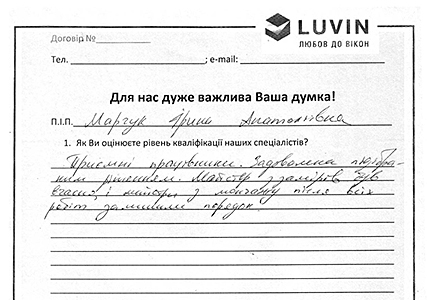 LUVIN
ЛЮБОВ ДО ВІКОН
Договір №
Тел. ; e-mail: ;
Для нас дуже важлива Ваша думка!
П.І.П. Марчук Ірина Анатоліївна
1. Як Ви оцінюєте рівень кваліфікації наших спеціалістів?
Приємні працівники. Задоволена підібра-
ним рішенням. Майстер з замірів був
вчасно, і майстри з монтажу після всіх
робіт залишили порядок.